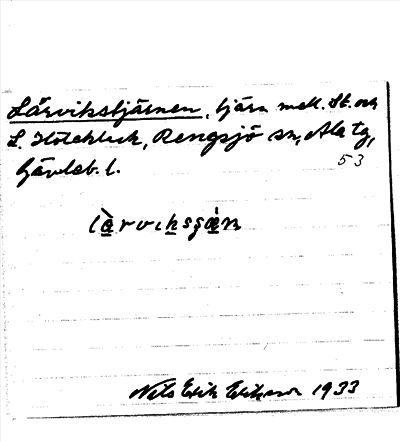 Lårvikstjärnen, tjärn mell. St. och
L. Hölekleck, Rengsjö sn, Ala tg,
Gävleb. l.
53
Nils Erik Eriksson 1933